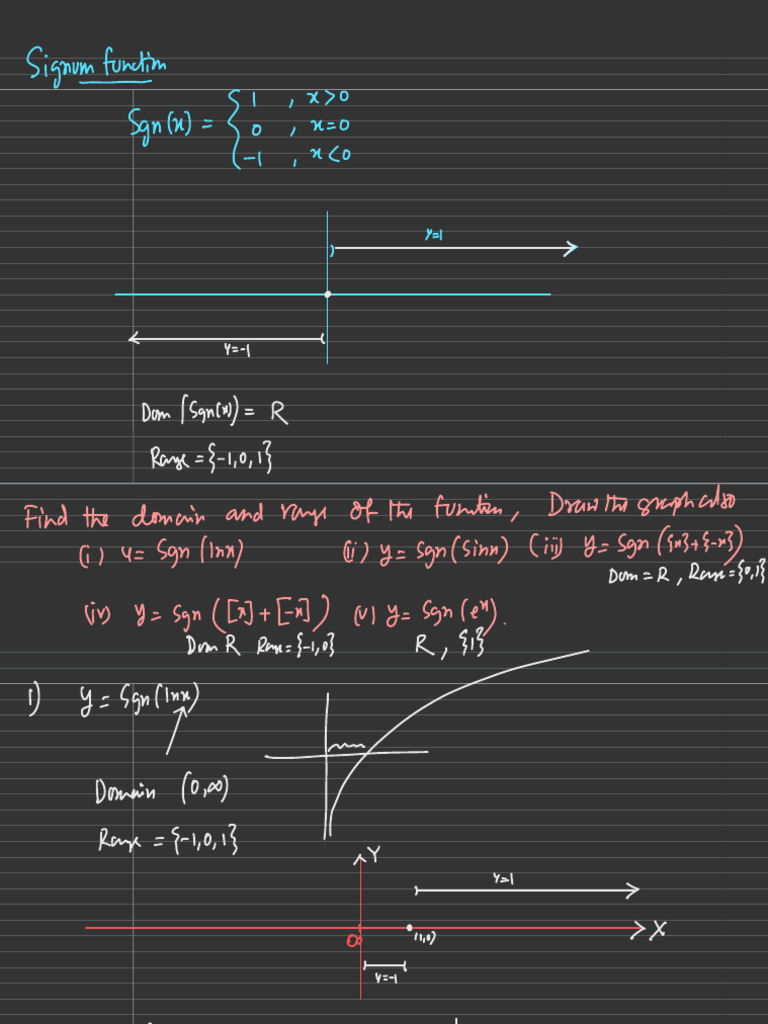 Signum function
Sgn(x) = { 1 , x>0
0 , x=0
-1 , x<0
y=1
y=-1
Dom (Sgn(x)) = R
Range = {-1,0,1}
Find the domain and range of the function, Draw the graph also
(i) y= Sgn (lnx) (ii) y= Sgn (Sinx) (iii) y= Sgn ({x}+{-x})
Dom = R , Range = {0,1}
(iv) y= Sgn ([x]+[-x]) (v) y= Sgn (eˣ).
Dom R Range = {-1,0} R , {1}
i) y = Sgn (lnx)
Domain (0,∞)
Range = {-1,0,1}
Y
y=1
O (1,0) X
y=-1